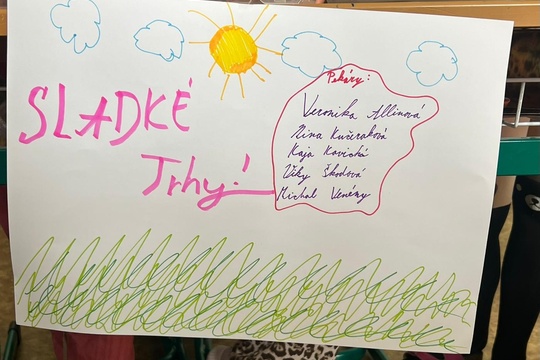 SLADKÉ
Trhy!
Pekáry:
Veronika Allinová
Nina Kučeraková
Kaja Kavická
Viky Škodová
Michal Venémy